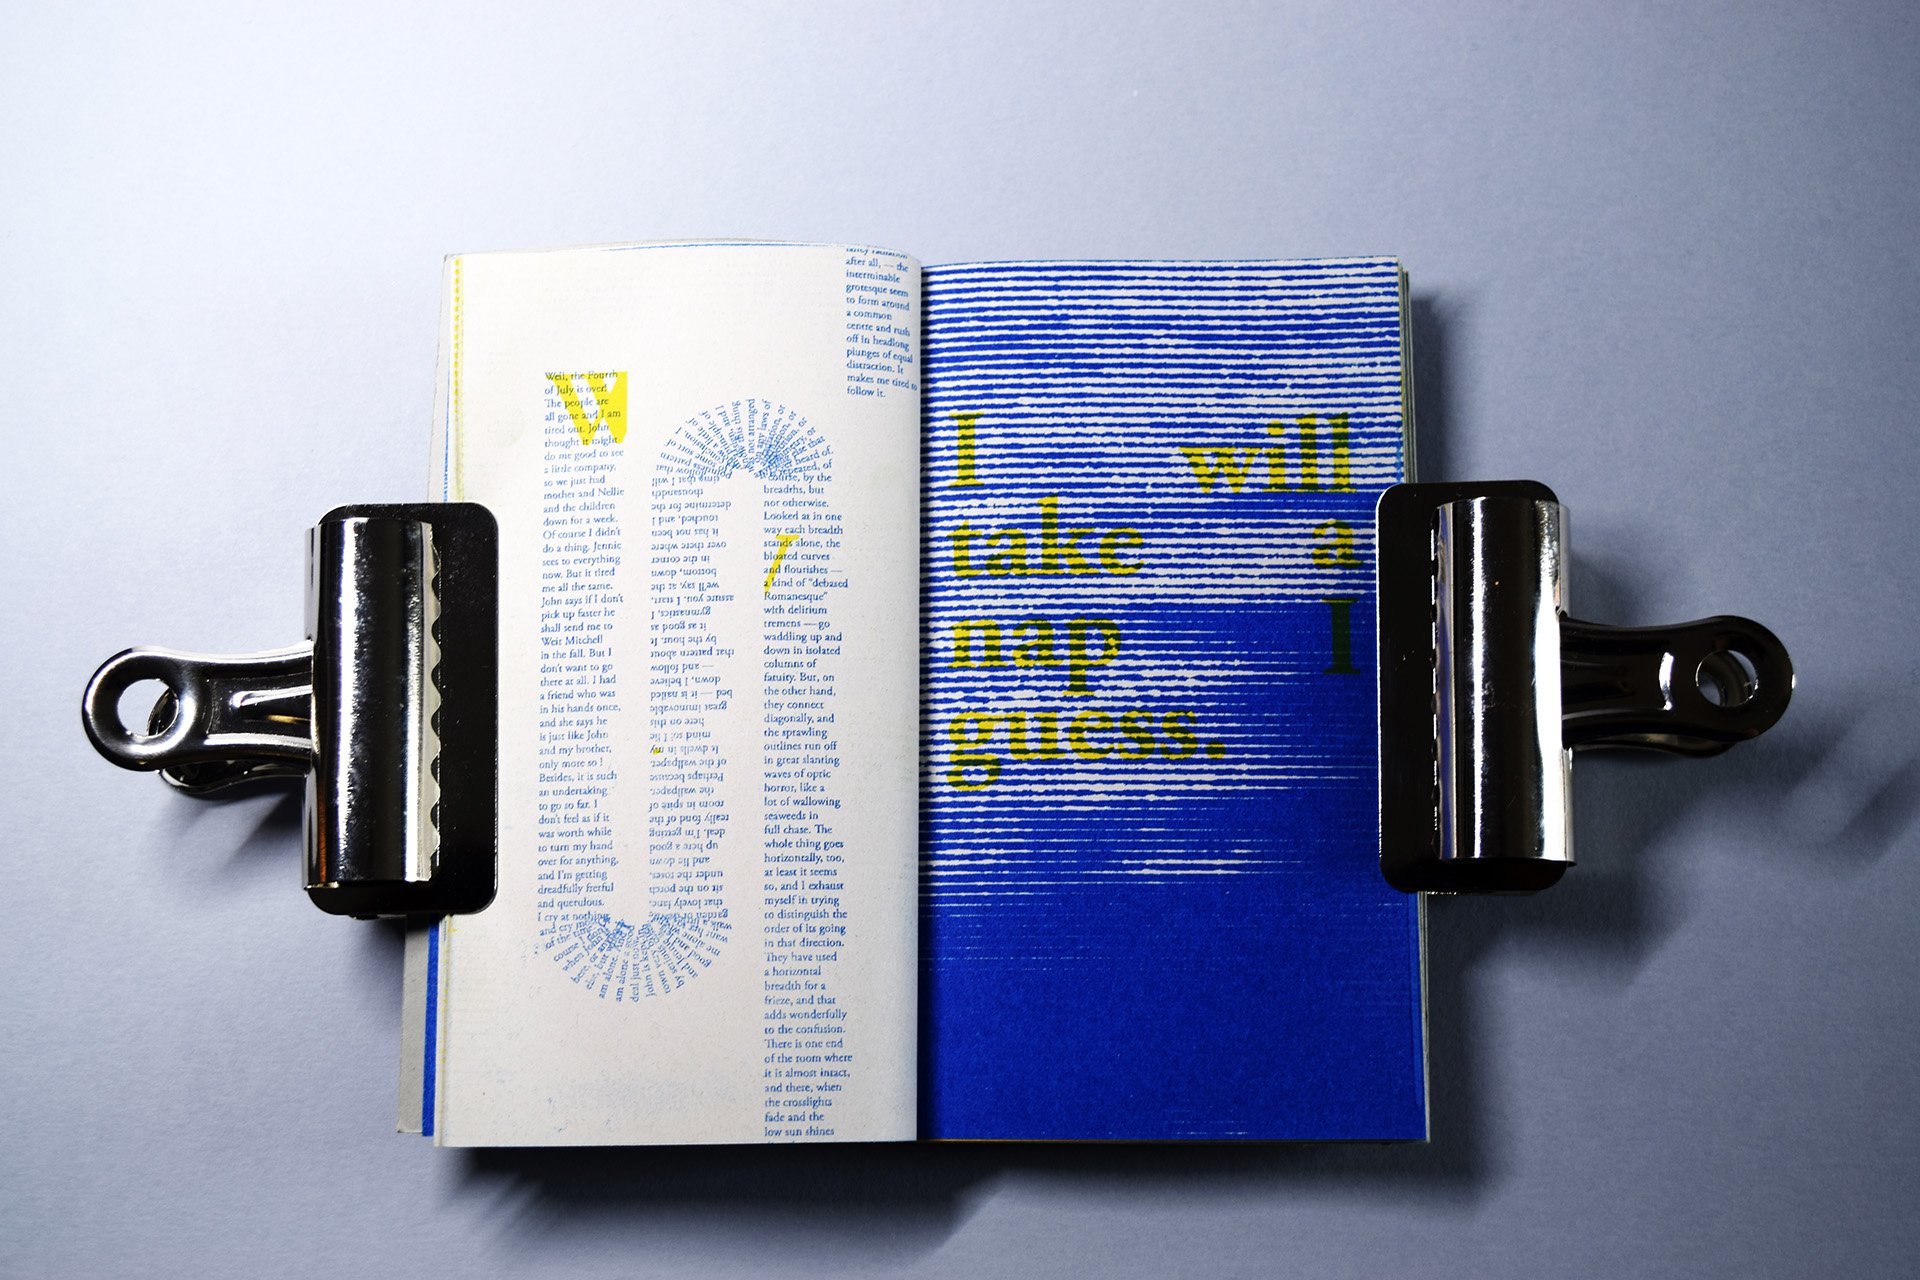 Well, the Fourth
of July is over!
The people are
all gone and I am
tired out. John
thought it might
do me good to see
a little company,
so we just had
mother and Nellie
and the children
down for a week.
Of course I didn't
do a thing. Jennie
sees to everything
now. But it tired
me all the same.
John says if I don't
pick up faster he
shall send me to
Weit Mitchell
in the fall. But I
don't want to go
there at all. I had
a friend who was
in his hands once,
and she says he
is just like John
and my brother,
only more so!
Besides, it is such
an undertaking
to go so far. I
don't feel as if it
was worth while
to turn my hand
over for anything,
and I'm getting
dreadfully fretful
and querulous.
I cry at nothing,
and cry most
of the time.
course I don't
when John is
here, or anybody
else, but when I
am alone. And I
am alone a good
deal just now.
John is kept in
town very often
by serious
good and lets
me alone when I
want
walk a little in the
garden or down
that lovely lane,
sit on the porch
under the roses,
and lie down
up here a good
deal. I'm getting
really fond of the
room in spite of
the wallpaper.
Perhaps because
of the wallpaper.
It dwells in my
mind so! I lie
here on this
great immovable
bed — it is nailed
down, I believe
— and follow
that pattern about
by the hour. It
it as good as
gymnastics, I
assure you. I start,
we'll say, at the
bottom, down
in the corner
over there where
it has not been
touched, and I
determine for the
thousandth
time that I will
follow that
pointless pattern
to some sort of
a conclusion. I
know a little of
the principle of
and I
know this thing
was not arranged
on any laws of
radiation, or
or
repetition, or
symmetry, or
else that
heard of.
repeated, of
course, by the
breadths, but
nor otherwise.
Looked at in one
way each breadth
stands alone, the
bloated curves
and flourishes —
a kind of "debased
Romanesque"
with delirium
tremens — go
waddling up and
down in isolated
columns of
fatuity. But, on
the other hand,
they connect
diagonally, and
the sprawling
outlines run off
in great slanting
waves of optic
horror, like a
lot of wallowing
seaweeds in
full chase. The
whole thing goes
horizontally, too,
at least it seems
so, and I exhaust
myself in trying
to distinguish the
order of its going
in that direction.
They have used
a horizontal
breadth for a
frieze, and that
adds wonderfully
to the confusion.
There is one end
of the room where
it is almost intact,
and there, when
the crosslights
fade and the
low sun shines
radiation
after all, — the
interminable
grotesque seem
to form around
a common
centre and rush
off in headlong
plunges of equal
distraction. It
makes me tired to
follow it.
W
I will
take a
nap I
guess.